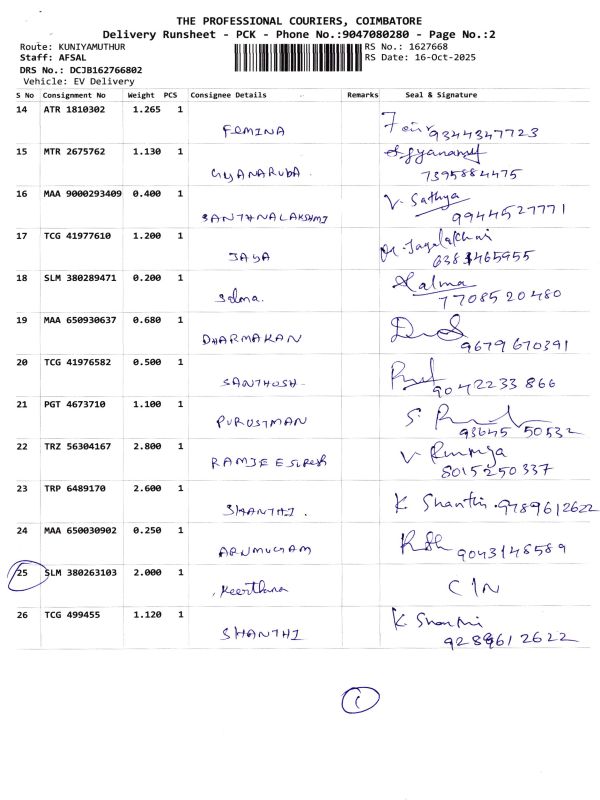 THE PROFESSIONAL COURIERS, COIMBATORE
Delivery Runsheet - PCK - Phone No.:9047080280 - Page No.:2
Route: KUNIYAMUTHUR RS No.: 1627668
Staff: AFSAL RS Date: 16-Oct-2025
DRS No.: DCJB162766802
Vehicle: EV Delivery
S No Consignment No Weight PCS Consignee Details Remarks Seal & Signature
14 ATR 1810302 1.265 1
FEMINA 9344347723
15 MTR 2675762 1.130 1
GYANARUBA. 7395884475
16 MAA 9000293409 0.400 1 V. Sathya
SANTHNALAKSHMI 9944527771
17 TCG 41977610 1.200 1
JAYA 6383465955
18 SLM 380289471 0.200 1 Salma
Selma. 7708520480
19 MAA 650930637 0.680 1
DHARMAKAN 9679670391
20 TCG 41976582 0.500 1
SANTHOSH. 9042233866
21 PGT 4673710 1.100 1
PURUSTMAN 93645 50532
22 TRZ 56304167 2.800 1 V Rumya
RAMJEE SURESH 8015250337
23 TRP 6489170 2.600 1 K Shanthi
SHANTHI. 9789612622
24 MAA 650030902 0.250 1
ARUMUGAM 9043148589
25 SLM 380263103 2.000 1
Keerthana C/N
26 TCG 499455 1.120 1 K Shanthi
SHANTHI 9289612622